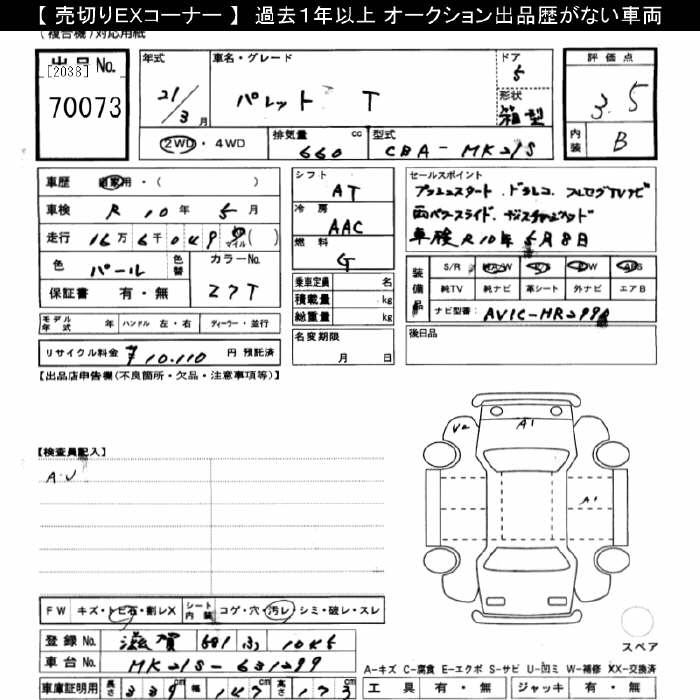 【 売切りEXコーナー 】 過去1年以上 オークション出品歴がない車両
(複合機)対応用紙
出品 No.
[2038]
70073
年式
21/3月
車名・グレード
パレット T
ドア
5
形状
箱型
評価点
3.5
内装
B
2WD・4WD
排気量 cc
660
型式
CBA-MK21S
車歴 自家用・( )
車検 R10年5月
走行 16万6千049 マイル( )
色 パール 色替
カラーNo.
Z7T
保証書 有・無
モデル年式 年 ハンドル 左・右 ディーラー・並行
リサイクル料金 ¥10.110 円 預託済
シフト
AT
冷房
AAC
燃料
G
乗車定員 名
積載量 kg
総重量 kg
名変期限
月 日
セールスポイント
プッシュスタート.ドラレコ.フルセグTVナビ
両パワースライド.
車検R10年5月8日
装備品
S/R AA/W P/S P/W ABS
純TV 純ナビ 革シート 外ナビ エアB
ナビ型番: AVIC-HR
後日品
【出品店申告欄(不良箇所・欠品・注意事項等)】
【検査員記入】
A.U
A1
A1
FW キズ・トビ石・割レX
シート内装 コゲ・穴・汚レ・シミ・破レ・スレ
登録 No. 滋賀 581 ふ
車台 No. MK21S-631299
車庫証明用 長さ 339cm 幅 147cm 高さ 173cm
スペア
A-キズ C-腐食 E-エクボ S-サビ U-凹ミ W-補修 XX-交換済
工具 有・無 ジャッキ 有・無